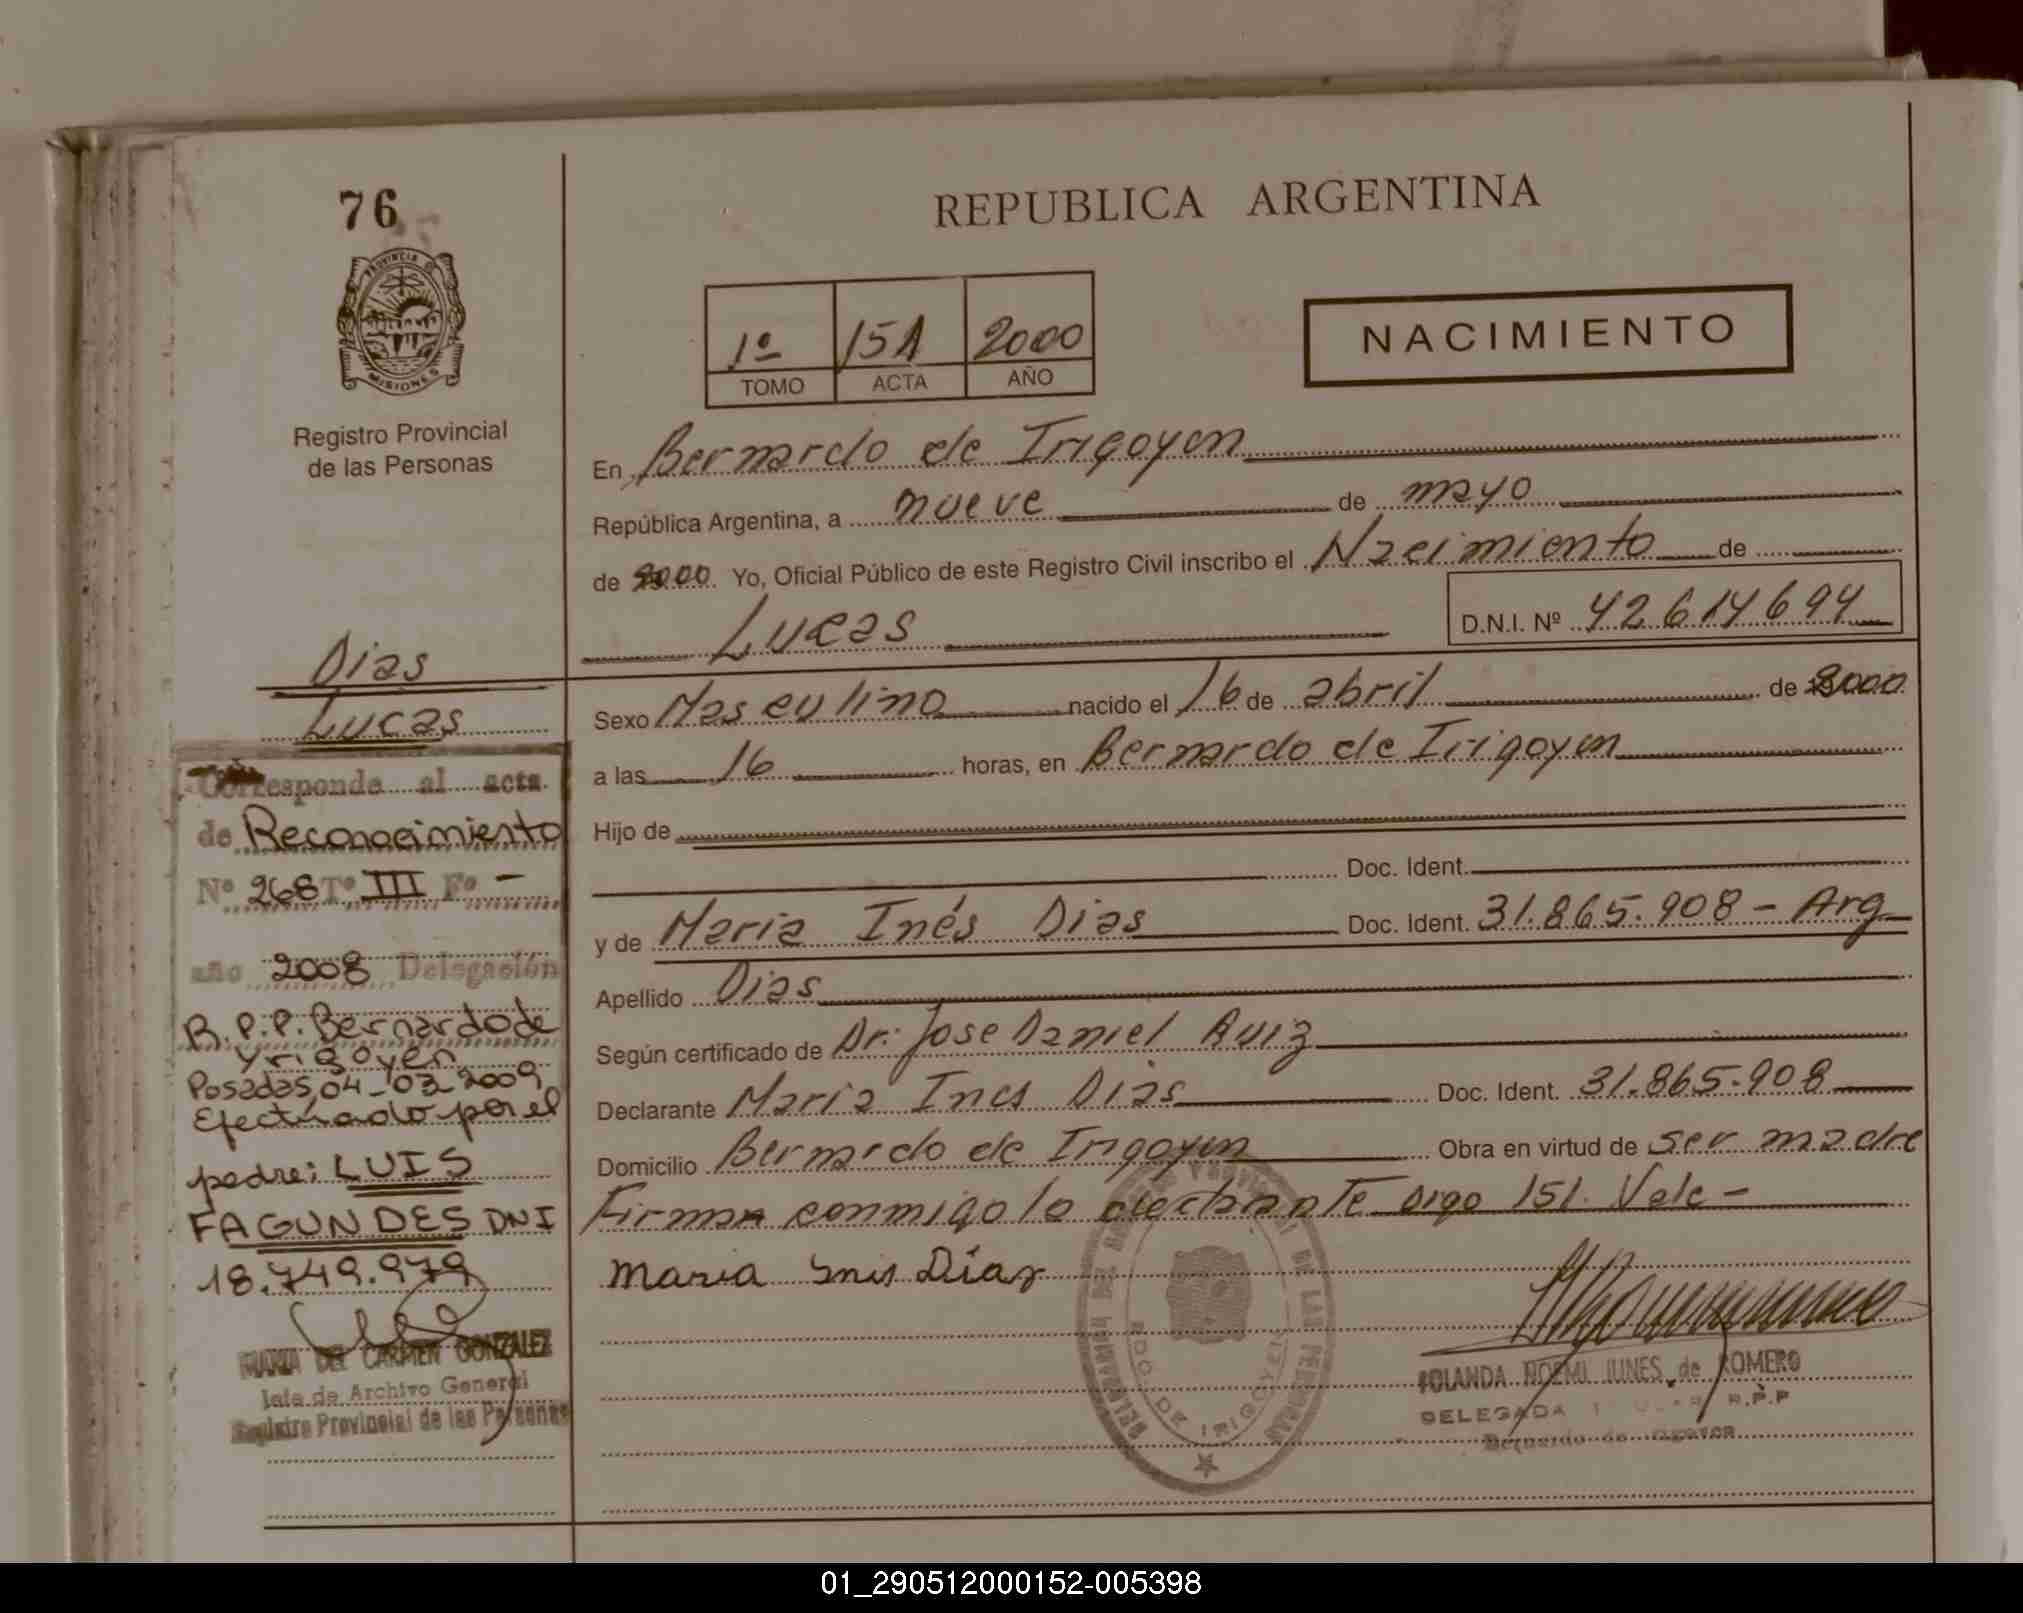 76
PROVINCIA DE
MISIONES
Registro Provincial
de las Personas
REPUBLICA ARGENTINA
1º 151 2000
TOMO ACTA AÑO
NACIMIENTO
En Bernardo de Irigoyen
República Argentina, a nueve de mayo
de 2000 Yo, Oficial Público de este Registro Civil inscribo el Nacimiento de
Lucas D.N.I. Nº 42614694
Dias
Lucas
Sexo Masculino nacido el 16 de abril de 2000
a las 16 horas, en Bernardo de Irigoyen
Hijo de
Doc. Ident.
y de Maria Inés Dias Doc. Ident. 31.865.908 - Arg
Apellido Dias
Según certificado de Dr: Jose Daniel Ruiz
Declarante Maria Ines Dias Doc. Ident. 31.865.908
Domicilio Bernardo de Irigoyen Obra en virtud de ser madre
Firma conmigo la declarante Digo 151. Vale -
Maria Inis Díaz
Corresponde al acta
de Reconocimiento
Nº 268 Tº III Fº -
año 2008 Delegación
R.P.P. Bernardo de
Yrigoyen
Posadas, 04-03-2009
Efectuado por el
padre: LUIS
FAGUNDES DNI
18.749.979
MARIA DEL CARMEN GONZALEZ
Jefe de Archivo General
Registro Provincial de las Personas
DE LAS PERSONAS
BDO DE IRIGOYEN
YOLANDA NOEMI JUNES de ROMERO
DELEGADA R.P.P
Bernardo de Irigoyen
01_290512000152-005398